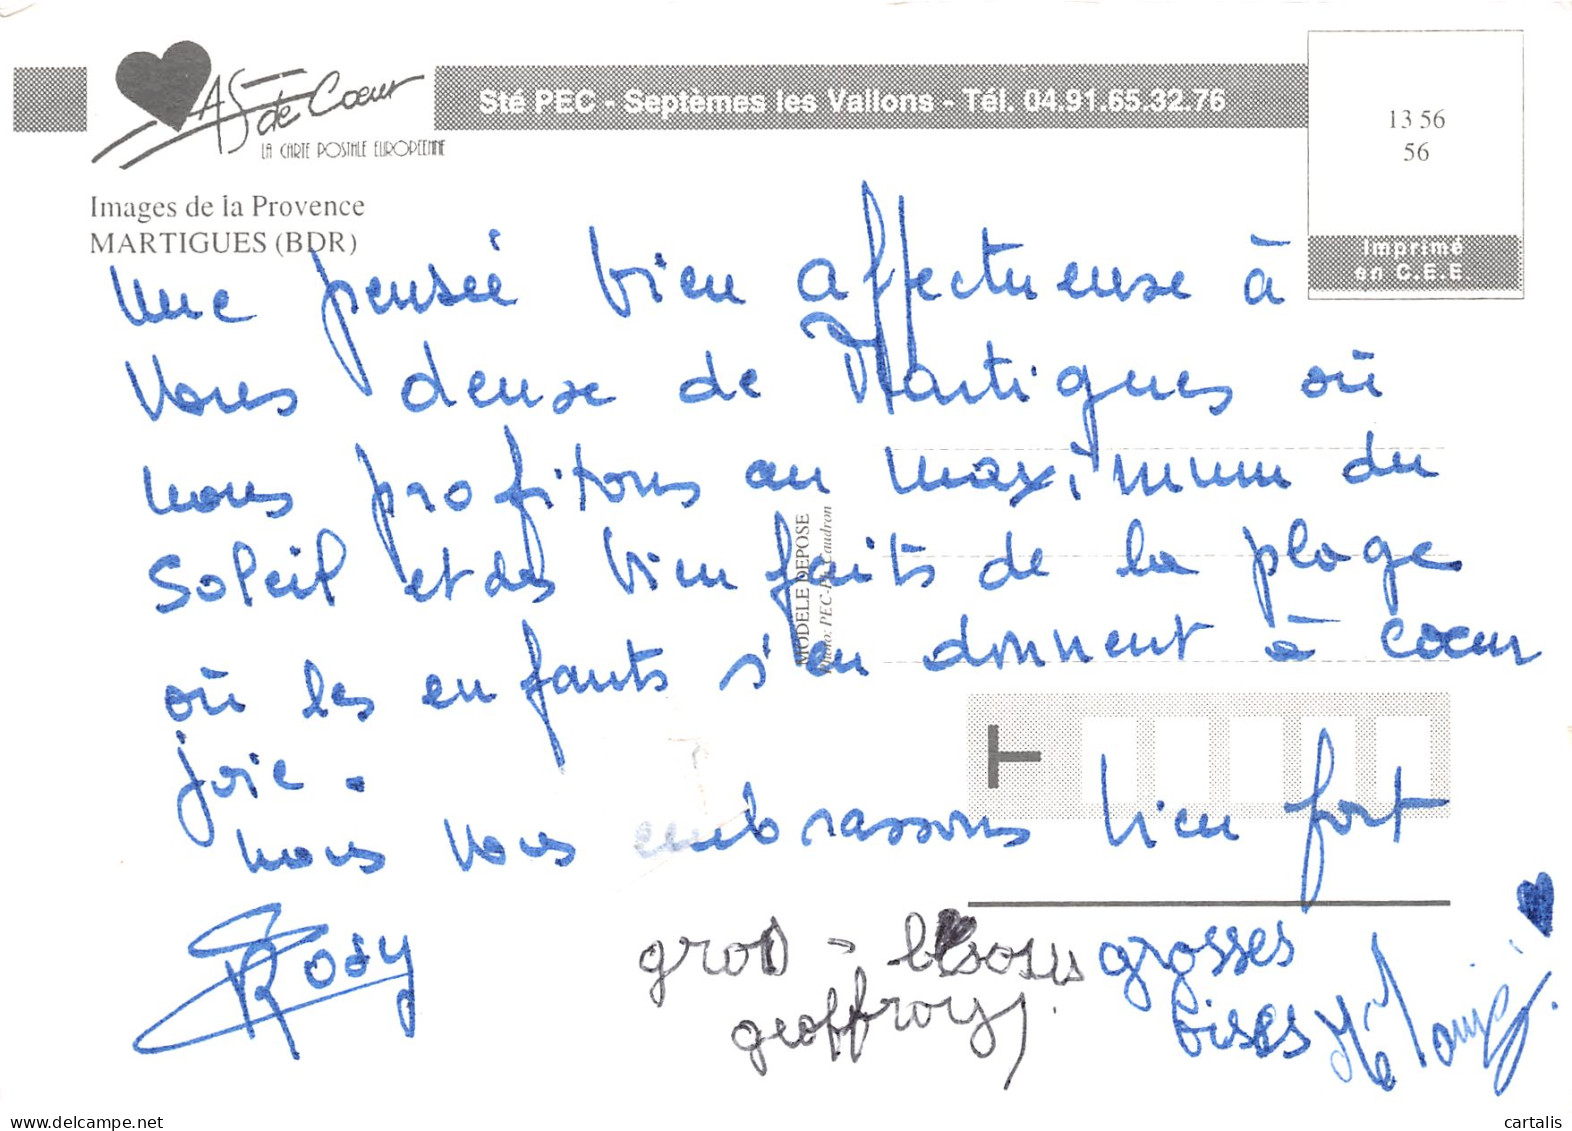 AS de Coeur
LA CARTE POSTALE EUROPEENNE
Sté PEC - Septèmes les Vallons - Tél. 04.91.65.32.76
13 56
56
Imprimé
en C.E.E
Images de la Provence
MARTIGUES (BDR)
Une pensée bien affectueuse à
Vous deux de Martigues où
nous profitons au maximum du
Soleil et des bien faits de la plage
où les enfants s'en donnent à coeur
joie.
Nous vous embrassons bien fort
MODELE DEPOSE
Photo: PEC- Caudron
Rosy
gros - bisous
geoffroy
grosses
bises
cartalis